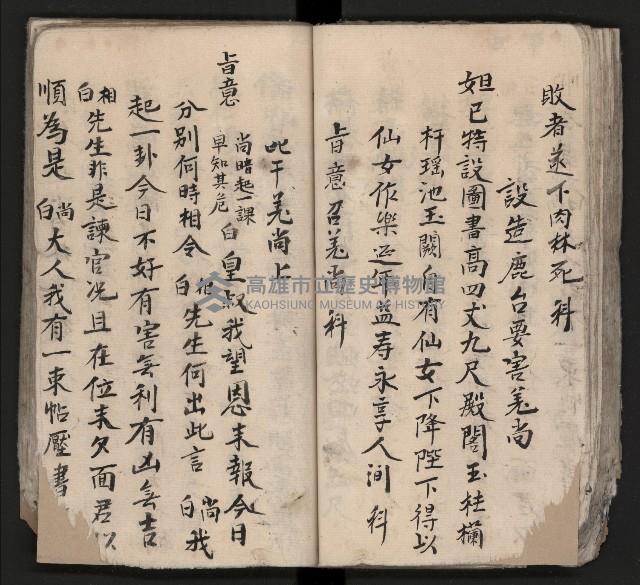 敗者送下肉林死科
設造鹿台要害羌尚
妲已特設圖書高四丈九尺殿閣玉柱欄
杆瑶池玉闕自有仙女下降陛下得以
仙女作樂延年益寿永享人间科
旨意召羌尚科
比干羌尚上
旨意 尚暗起一課早知其危 白 皇叔我望恩未報今日
分别何時相令 相白 先生何出此言 尚白 我
起一卦今日不好有害無利有凶無吉
相白 先生非是諫官况且在位未夕面君以
順為是 尚白 大人我有一柬帖壓書
高雄市立歷史博物館
KAOHSIUNG MUSEUM OF HISTORY